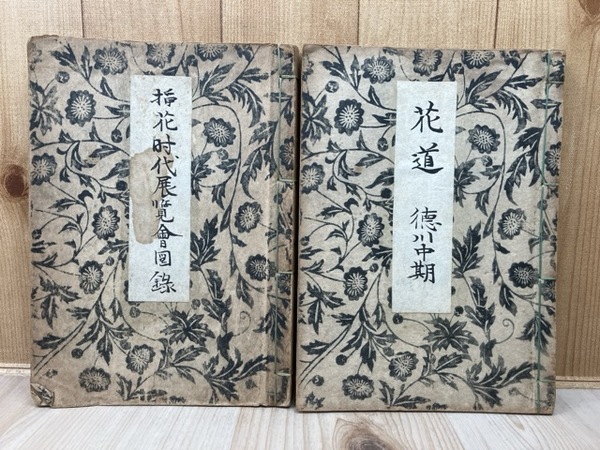 花道 徳川中期
挿花时代展覧會図錄